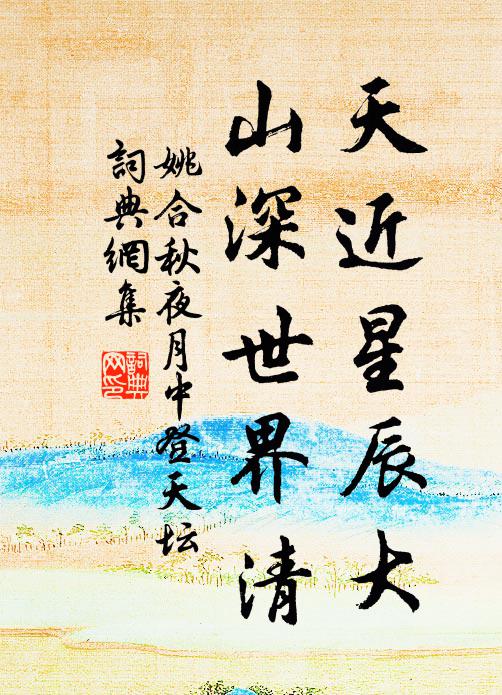 天近星辰大
山深世界清
姚合秋夜月中登天坛
詞典網集
詞典网印